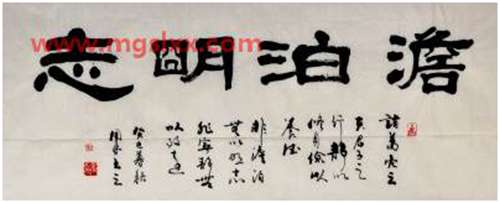 www.mgslxx.com
澹泊明志
諸葛亮云
夫君子之
行靜以
修身儉以
養德
非澹泊
無以明志
非寧靜無
以致遠
癸巳暮秋